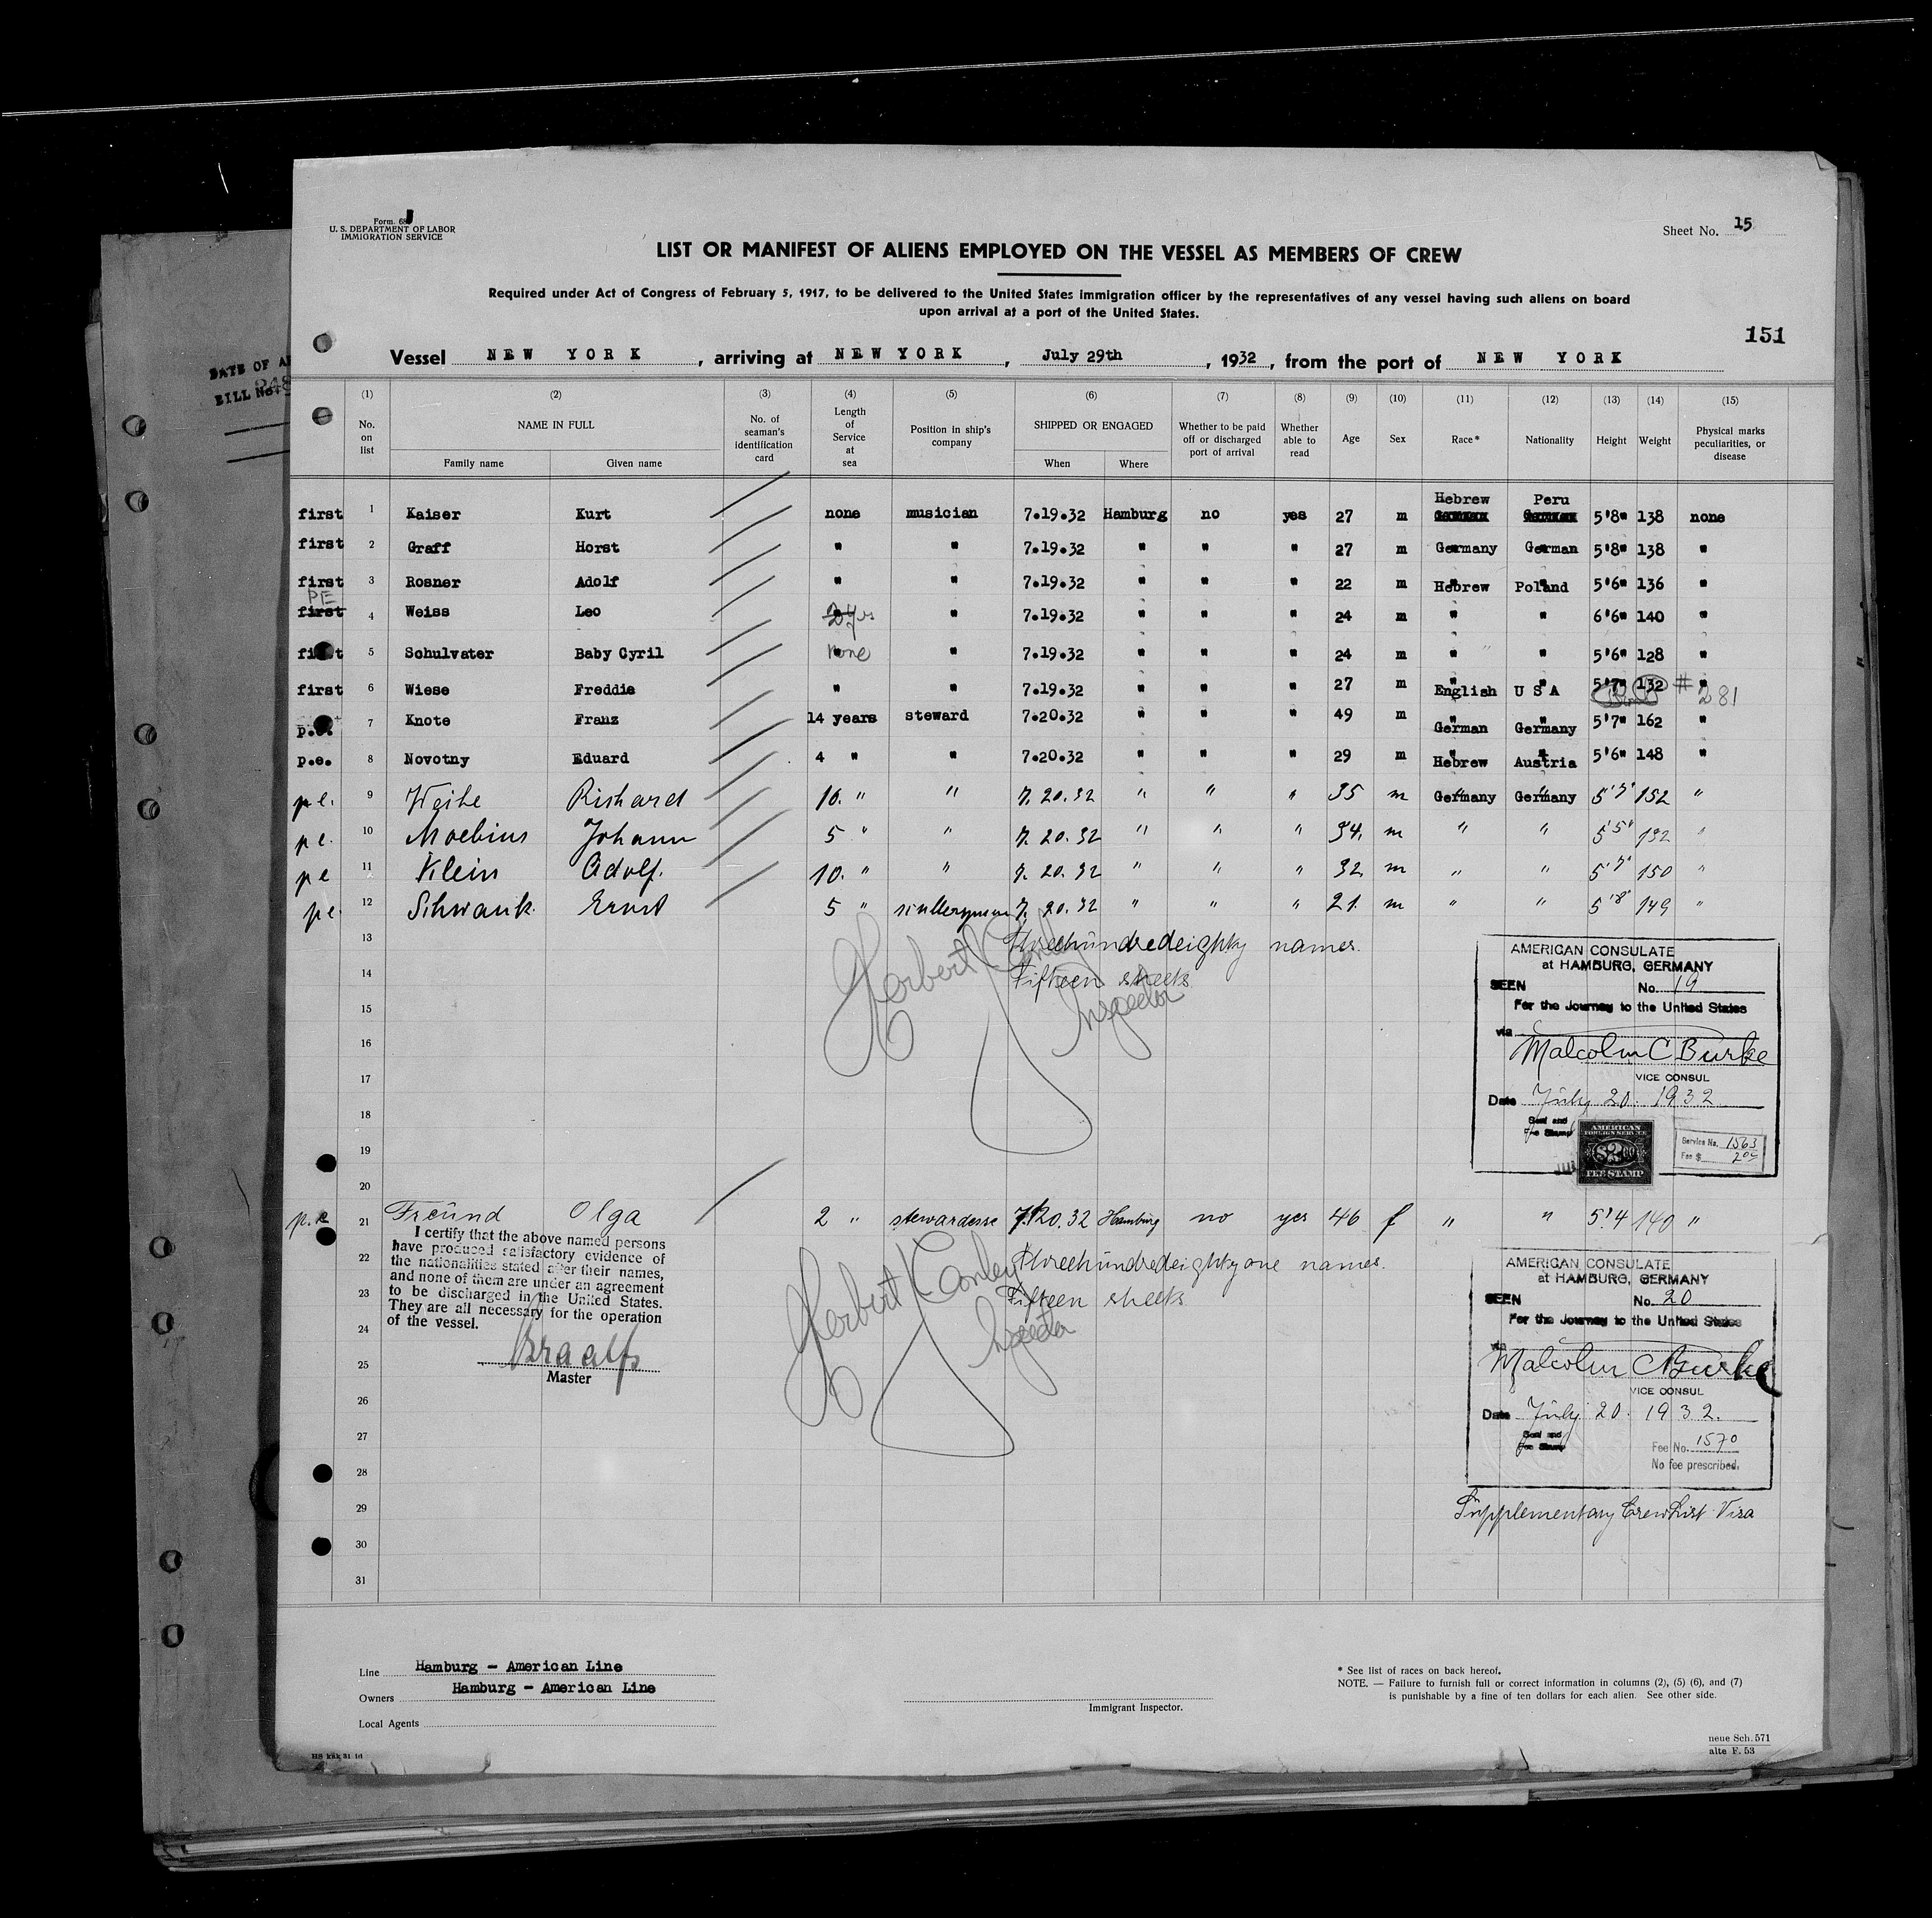 Form. 68
U. S. DEPARTMENT OF LABOR
IMMIGRATION SERVICE
Sheet No. 15
LIST OR MANIFEST OF ALIENS EMPLOYED ON THE VESSEL AS MEMBERS OF CREW
Required under Act of Congress of February 5, 1917, to be delivered to the United States immigration officer by the representatives of any vessel having such aliens on board
upon arrival at a port of the United States.
151
Vessel NEW YORK, arriving at NEW YORK, July 29th, 1932, from the port of NEW YORK
DATE OF
BILL No.
(1) (2) (3) (4) (5) (6) (7) (8) (9) (10) (11) (12) (13) (14) (15)
No. on list NAME IN FULL Family name Given name No. of seaman's identification card Length of Service at sea Position in ship's company SHIPPED OR ENGAGED When Where Whether to be paid off or discharged port of arrival Whether able to read Age Sex Race* Nationality Height Weight Physical marks peculiarities, or disease
first 1 Kaiser Kurt none musician 7.19.32 Hamburg no yes 27 m Hebrew Peru 5'8" 138 none
first 2 Graff Horst " " 7.19.32 " " " 27 m Germany German 5'8" 138 "
first 3 Rosner Adolf " " 7.19.32 " " " 22 m Hebrew Poland 5'6" 136 "
PE first 4 Weiss Leo " 7.19.32 " " " 24 m " " 6'6" 140 "
first 5 Schulvater Baby Cyril none " 7.19.32 " " " 24 m " " 5'6" 128 "
first 6 Wiese Freddie " " 7.19.32 " " " 27 m English U S A 5'7" 132 " # 281
p.e. 7 Knote Franz 14 years steward 7.20.32 " " " 49 m German Germany 5'7" 162 "
p.e. 8 Novotny Eduard 4 " " 7.20.32 " " " 29 m Hebrew Austria 5'6" 148 "
pe. 9 Weihe Richard 10. " " 7.20.32 " " " 35 m Germany Germany 5'7" 152 "
pe. 10 Moebius Johann 5 " " 7.20.32 " " " 34. m " " 5'5" 132 "
pe 11 Klein Adolf. 10. " " 7.20.32 " " " 32 m " " 5'7" 150 "
pe. 12 Schwank Ernst 5 " 7.20.32 " " " 21. m " " 5'8" 149 "
13 Threehundredeighty names.
14 Fifteen sheets
Herbert Conley
Inspector
15
16
17
18
19
20
AMERICAN CONSULATE
at HAMBURG, GERMANY
SEEN No. 19
For the Journey to the United States
via
Malcolm C Burke
VICE CONSUL
Date July 20. 1932
Seal and
Fee Stamp
AMERICAN
FOREIGN SERVICE
$2.00
FEE STAMP
Service No. 1563
Fee $ 2.00
p.e 21 Freund Olga 2 " stewardesse 7.20.32 Hamburg no yes 46 f " " 5'4 140 "
I certify that the above named persons
have produced satisfactory evidence of
the nationalities stated after their names,
and none of them are under an agreement
to be discharged in the United States.
They are all necessary for the operation
of the vessel.
Master
22 Threehundredeightyone names.
23 Fifteen sheets
Herbert Conley
Inspector
24
25
26
27
28
29
30
31
AMERICAN CONSULATE
at HAMBURG, GERMANY
SEEN No. 20
For the Journey to the United States
via
Malcolm C Burke
VICE CONSUL
Date July 20. 1932.
Seal and
Fee Stamp
Fee No. 1570
No fee prescribed.
Supplementary Crew List Visa
Line Hamburg - American Line
Owners Hamburg - American Line
Local Agents
Immigrant Inspector.
* See list of races on back hereof.
NOTE. — Failure to furnish full or correct information in columns (2), (5) (6), and (7)
is punishable by a fine of ten dollars for each alien. See other side.
neue Sch. 571
alte F. 53